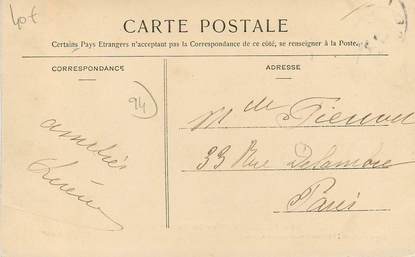 40€
CARTE POSTALE
Certains Pays Etrangers n'acceptant pas la Correspondance de ce côté, se renseigner à la Poste.
CORRESPONDANCE
ADRESSE
94
amitiés
M de
33 Rue Delambre
Paris